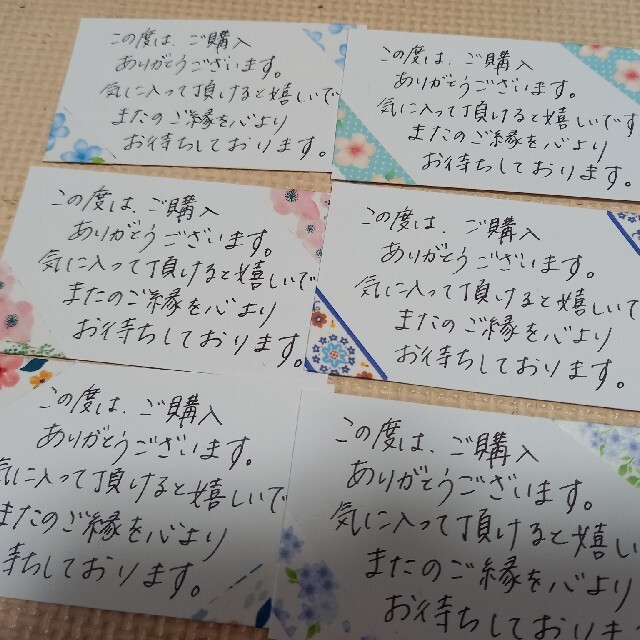 この度は、ご購入
ありがとうございます。
気に入って頂けると嬉しいで
またのご縁を心より
お待ちしております。
この度は、ご購入
ありがとうございます。
気に入って頂けると嬉しいです
またのご縁を心より
お待ちしております。
この度は、ご購入
ありがとうございます。
気に入って頂けると嬉しいで
またのご縁を心より
お待ちしております。
この度は、ご購入
ありがとうございます。
気に入って頂けると嬉しいで
またのご縁を心より
お待ちしております。
この度は、ご購入
ありがとうございます。
気に入って頂けると嬉しいで
またのご縁を心より
待ちしております。
この度は、ご購入
ありがとうございます。
気に入って頂けると嬉しい
またのご縁を心より
お待ちしております